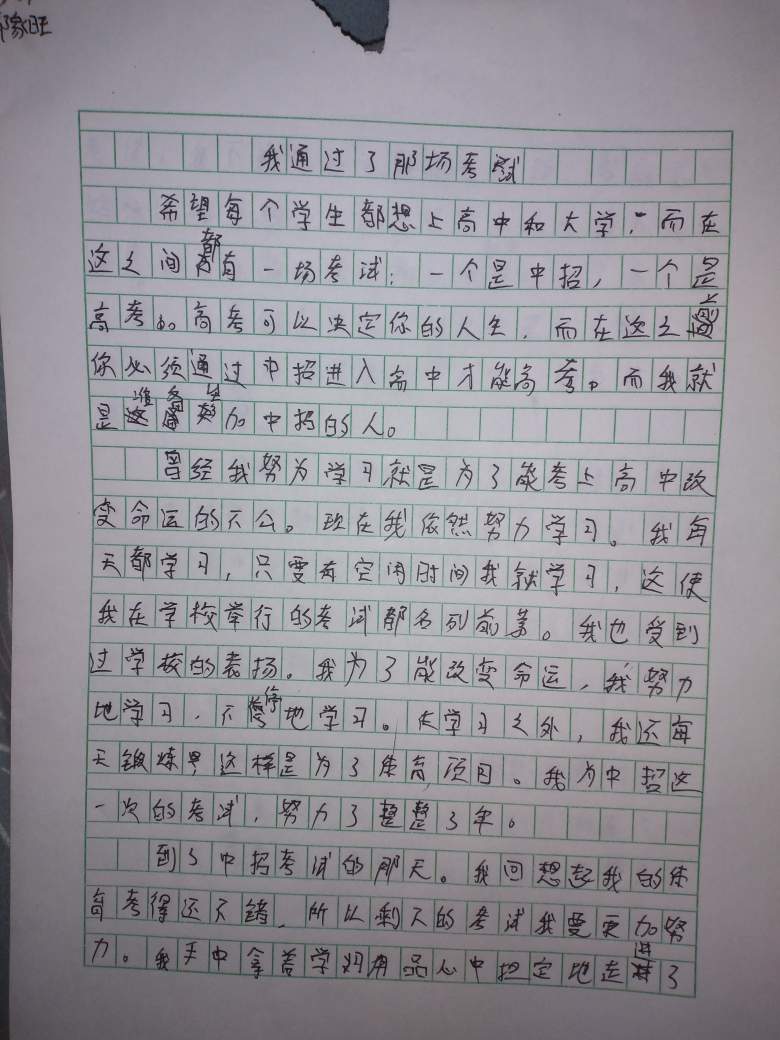 郜家旺
我通过了那场考试
希望每个学生都想上高中和大学,而在
这之间都有一场考试:一个是中招,一个是
高考。高考可以决定你的人生,而在这之前
你必须通过中招进入高中才能高考。而我就
是准备参加中招的人。
曾经我努力学习就是为了能考上高中改
变命运的不公。现在我依然努力学习。我每
天都学习,只要有空闲时间我就学习,这使
我在学校举行的考试都名列前茅。我也受到
过学校的表扬。我为了能改变命运,我努力
地学习,不停地学习。在学习之外,我还每
天锻炼 这样是为了体育项目。我为中招这
一次的考试,努力了整整3年。
到了中招考试的那天。我回想起我的体
育考得还不错,所以剩下的考试我要更加努
力。我手中拿着学 用品心中 定地走进了